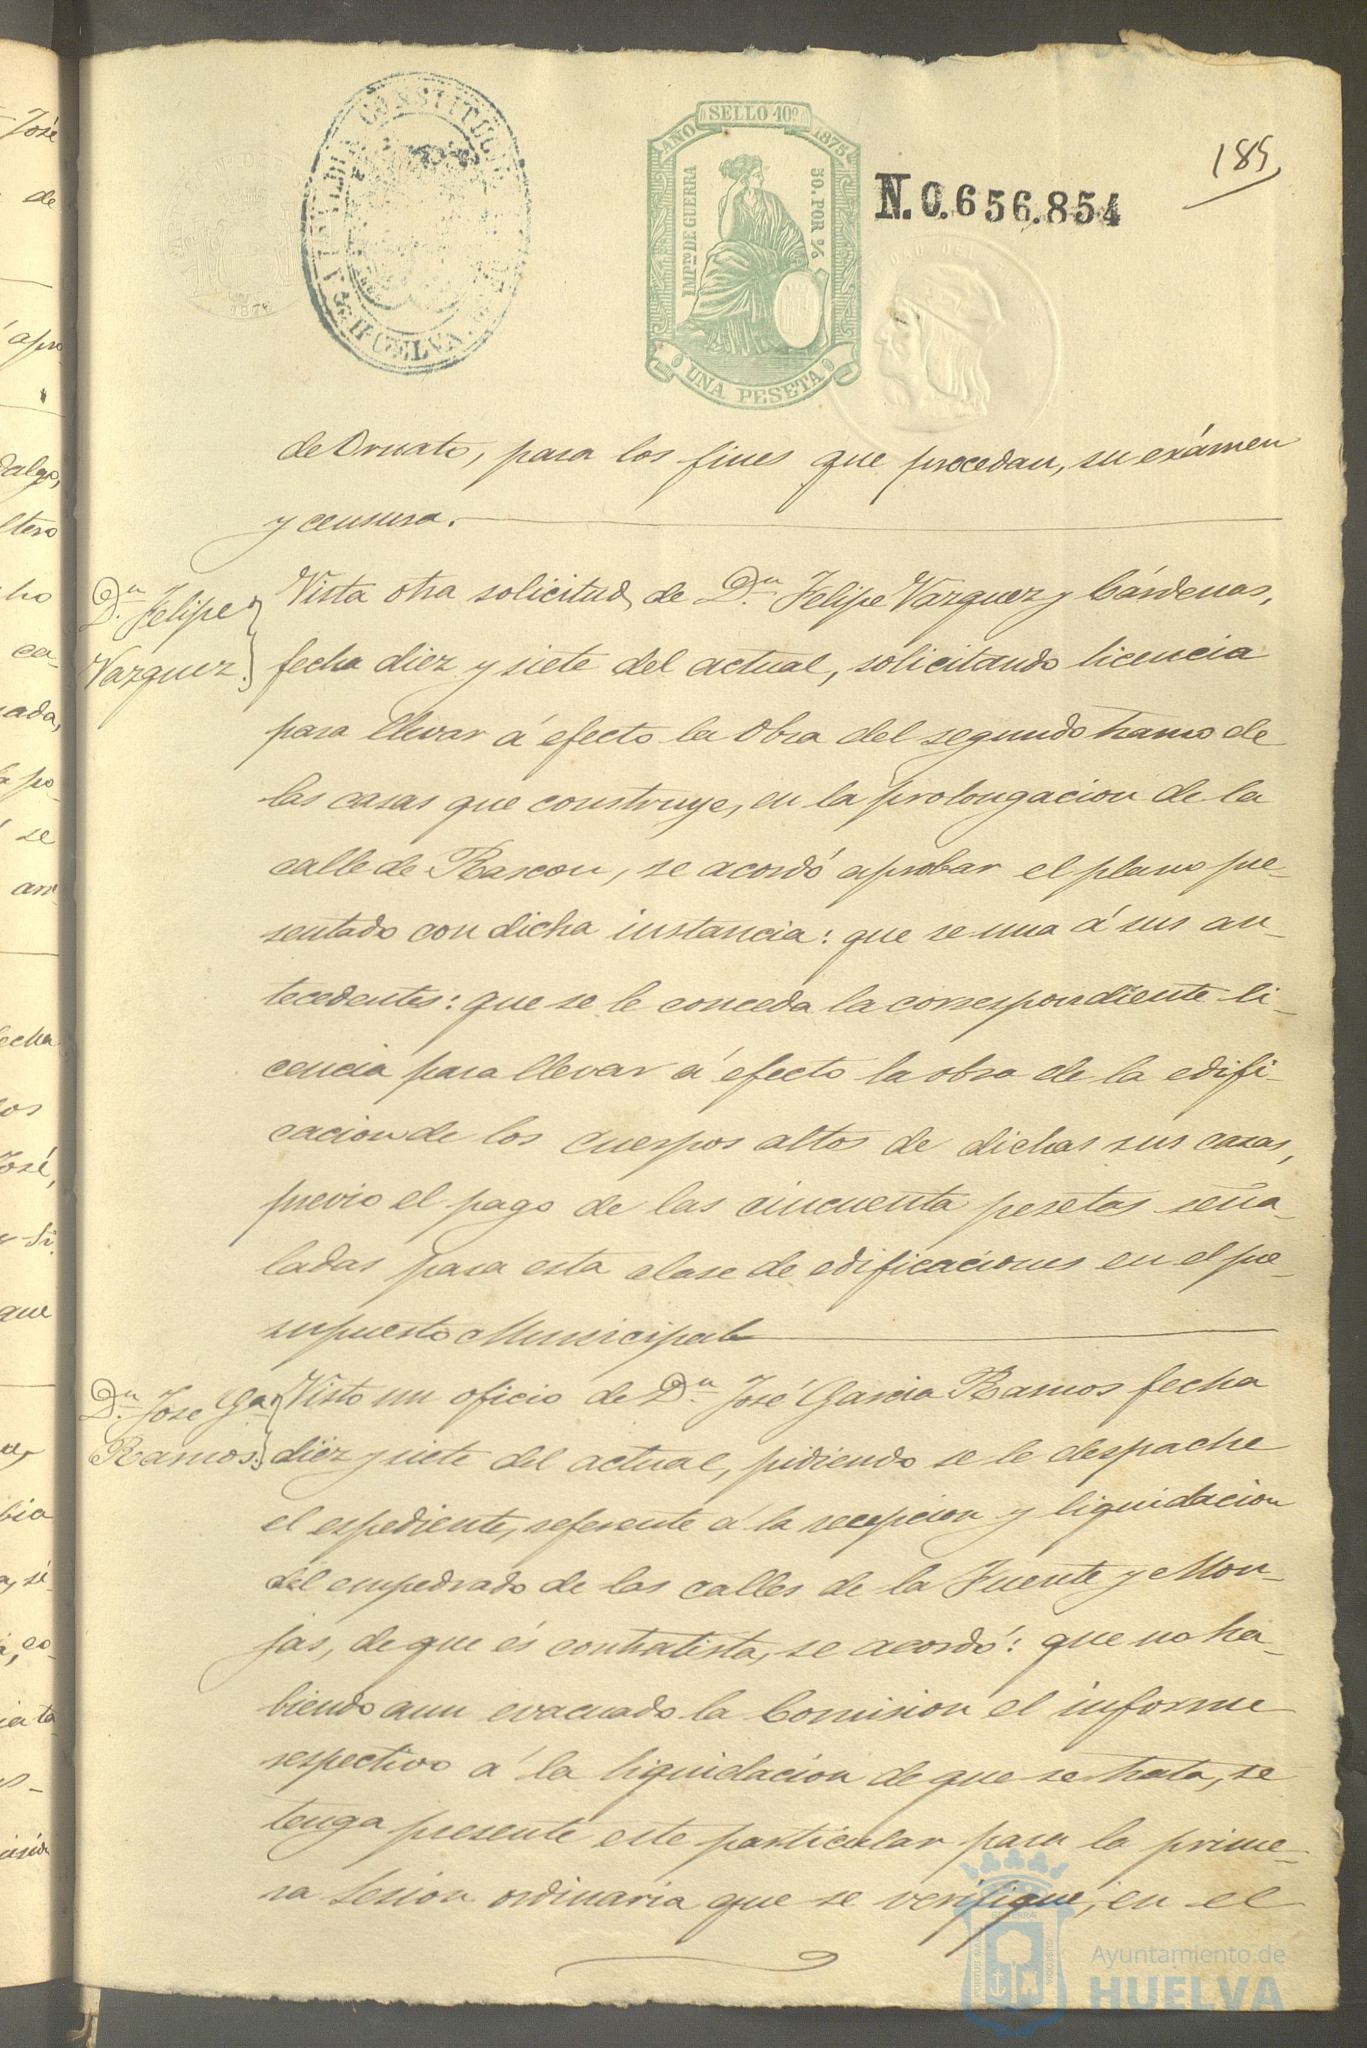 ALCALDIA CONSTITUCIONAL DE Hª HUELVA
1876
SELLO 10º
AÑO 1875
IMPtº DE GUERRA
50. POR %
UNA PESETA
N.0.656.854
185
de Ornato, para los fines que procedan, su exámen
y censura.
Dn. Felipe
Vazquez.
Vista otra solicitud, de Dn. Felipe Vazquez y Cárdenas,
fecha diez y siete del actual, solicitando licencia
para llevar á efecto la obra del segundo tramo de
las casas que construye, en la prolongacion de la
calle de Rascon, se acordó aprobar el plano pre-
sentado con dicha instancia: que se una á sus an-
tecedentes: que se le conceda la correspondiente li-
cencia para llevar á efecto la obra de la edifi-
cacion de los cuerpos altos de dichas sus casas,
previo el pago de las cincuenta pesetas seña-
ladas para esta clase de edificaciones en el pre-
supuesto Municipal
Dn. Jose Ga
Ramos.
Visto un oficio de Dn. José Garcia Ramos fecha
diez y siete del actual, pidiendo se le despache
el espediente, referente á la recepcion y liquidacion
del empedrado de las calles de la Fuente y Mon-
jas, de que és contratista, se acordó: que no ha-
biendo aun evacuado la Comision el informe
respectivo á la liquidacion de que se trata, se
tenga presente este particular para la prime-
ra sesion ordinaria que se verifique, en el
Ayuntamiento de
HUELVA